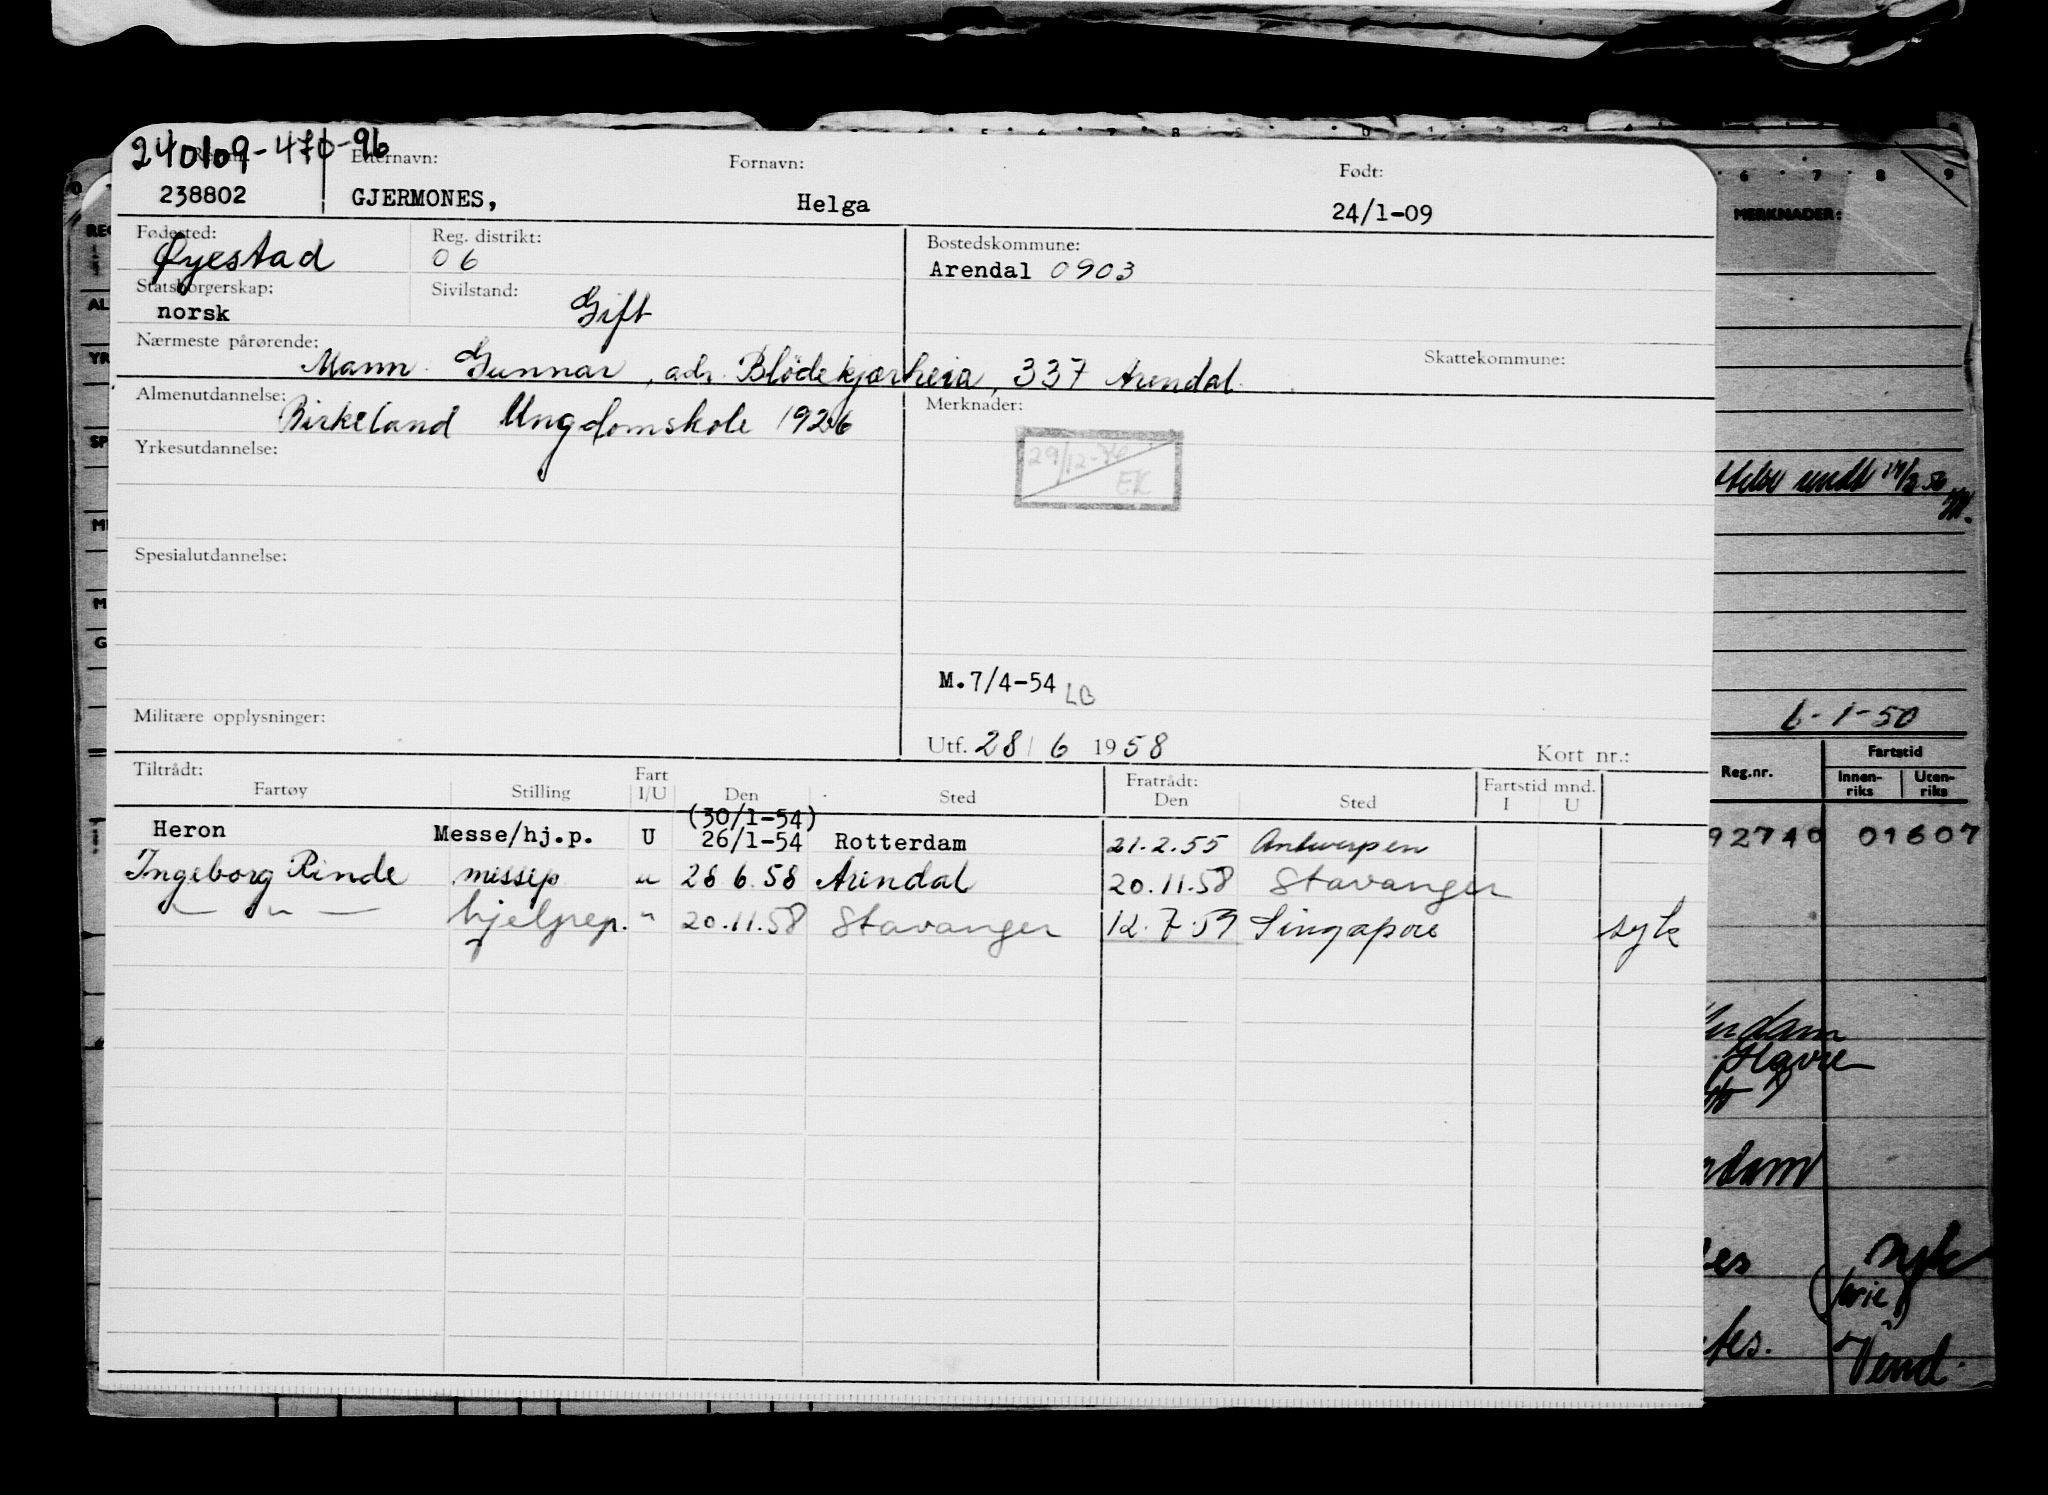 240109-470-96
Reg.nr. Etternavn: Fornavn: Født:
238802 GJERMONES, Helga 24/1-09
Fødested: Reg. distrikt: Bostedskommune:
Øyestad 06 Arendal 0903
Statsborgerskap: Sivilstand:
norsk Gift
Nærmeste pårørende: Skattekommune:
Mann Gunnar, adr. Blödekjærheia, 337 Arendal
Almenutdannelse: Merknader:
Birkeland Ungdomskole 1926
Yrkesutdannelse: 29/12-76
EK
Spesialutdannelse:
M.7/4-54 LB
Militære opplysninger:
Utf. 28/6 1958 Kort nr.:
Tiltrådt: Fart Fratrådt: Fartstid mnd.
Fartøy Stilling I/U Den Sted Den Sted I U
(30/1-54)
Heron Messe/hj.p. U 26/1-54 Rotterdam 21.2.55 Antwerpen
Ingeborg Rinde messep " 28 6.58 Arendal 20.11.58 Stavanger
— " — hjelpep. " 20.11.58 Stavanger 12.7.59 Singapore syk
MERKNADER:
6-1-50
Reg.nr. Fartstid
Innen-riks Uten-riks
92740 01607
Havre
syk
Vend.